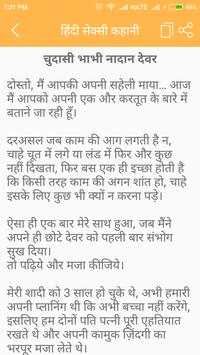 7:01 PM
हिंदी सेक्सी कहानी
चुदासी भाभी नादान देवर
दोस्तो, मैं आपकी अपनी सहेली माया... आज
मैं आपको अपनी एक और करतूत के बारे में
बताने जा रही हूँ।
दरअसल जब काम की आग लगती है न,
चाहे चूत में लगे या लंड में फिर और कुछ
नहीं दिखता, फिर बस एक ही इच्छा होती है
कि किसी तरह काम की अगन शांत हो, चाहे
इसके लिए कुछ भी क्यों न करना पड़े।
ऐसा ही एक बार मेरे साथ हुआ, जब मैंने
अपने ही छोटे देवर को पहली बार संभोग
सुख दिया।
तो पढ़िये और मजा कीजिये।
मेरी शादी को 3 साल हो चुके थे, अभी हमारी
अपनी प्लानिंग थी कि अभी बच्चा नहीं करेंगे,
इसलिए हम दोनों पति पत्नी पूरी एहतियात
रखते थे और अपनी कामुक ज़िंदगी का
भरपूर मजा लेते थे।